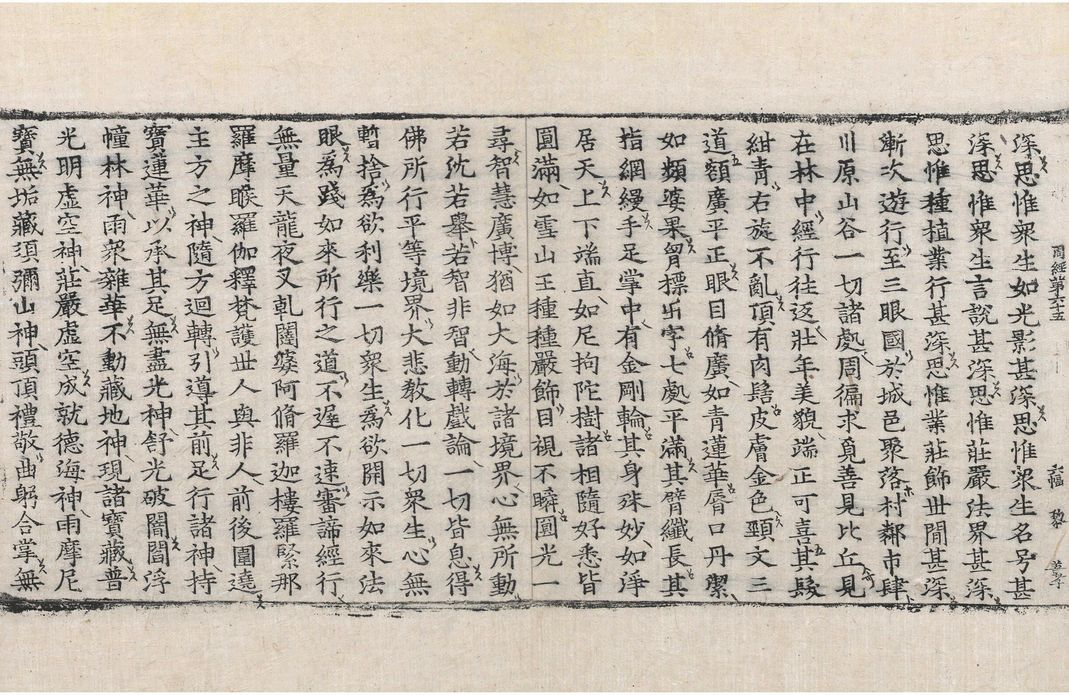 周經第六十五
深思惟衆生如光影甚深思惟衆生名号甚
深思惟衆生言說甚深思惟莊嚴法界甚深
思惟種植業行甚深思惟業莊飾世間甚深
漸次遊行至三眼國於城邑聚落村鄰市肆
川原山谷一切諸處周徧求覓善見比丘見
在林中經行往返壯年美貌端正可喜其髮
紺青右旋不亂頂有肉髻皮膚金色頸文三
道額廣平正眼目脩廣如青蓮華脣口丹潔
如頻婆果胷標卍字七處平滿其臂纖長其
指網縵手足掌中有金剛輪其身殊妙如淨
居天上下端直如尼拘陀樹諸相隨好悉皆
圓滿如雪山王種種嚴飾目視不瞬圓光一
尋智慧廣博猶如大海於諸境界心無所動
若沈若舉若智非智動轉戲論一切皆息得
佛所行平等境界大悲教化一切衆生心無
暫捨爲欲利樂一切衆生爲欲開示如來法
眼爲踐如來所行之道不遲不速審諦經行
無量天龍夜叉乹闥婆阿脩羅迦樓羅緊那
羅摩睺羅伽釋梵護世人與非人前後圍遶
主方之神隨方迴轉引導其前足行諸神持
寶蓮華以承其足無盡光神舒光破闇閻浮
幢林神雨衆雜華不動藏地神現諸寶藏普
光明虛空神莊嚴虛空成就德海神雨摩尼
寶無垢藏須彌山神頭頂禮敬曲躬合掌無